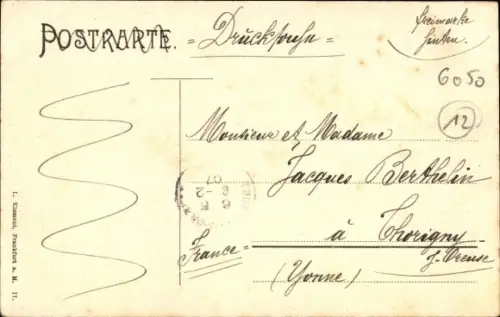 POSTKARTE.
= Drucksache =
Freimarke
hinten.
6050
12
Monsieur et Madame
Jacques Berthelin
à Thorigny
s/-Oreuse
France =
(Yonne)
L. Klement, Frankfurt a. M. 17.